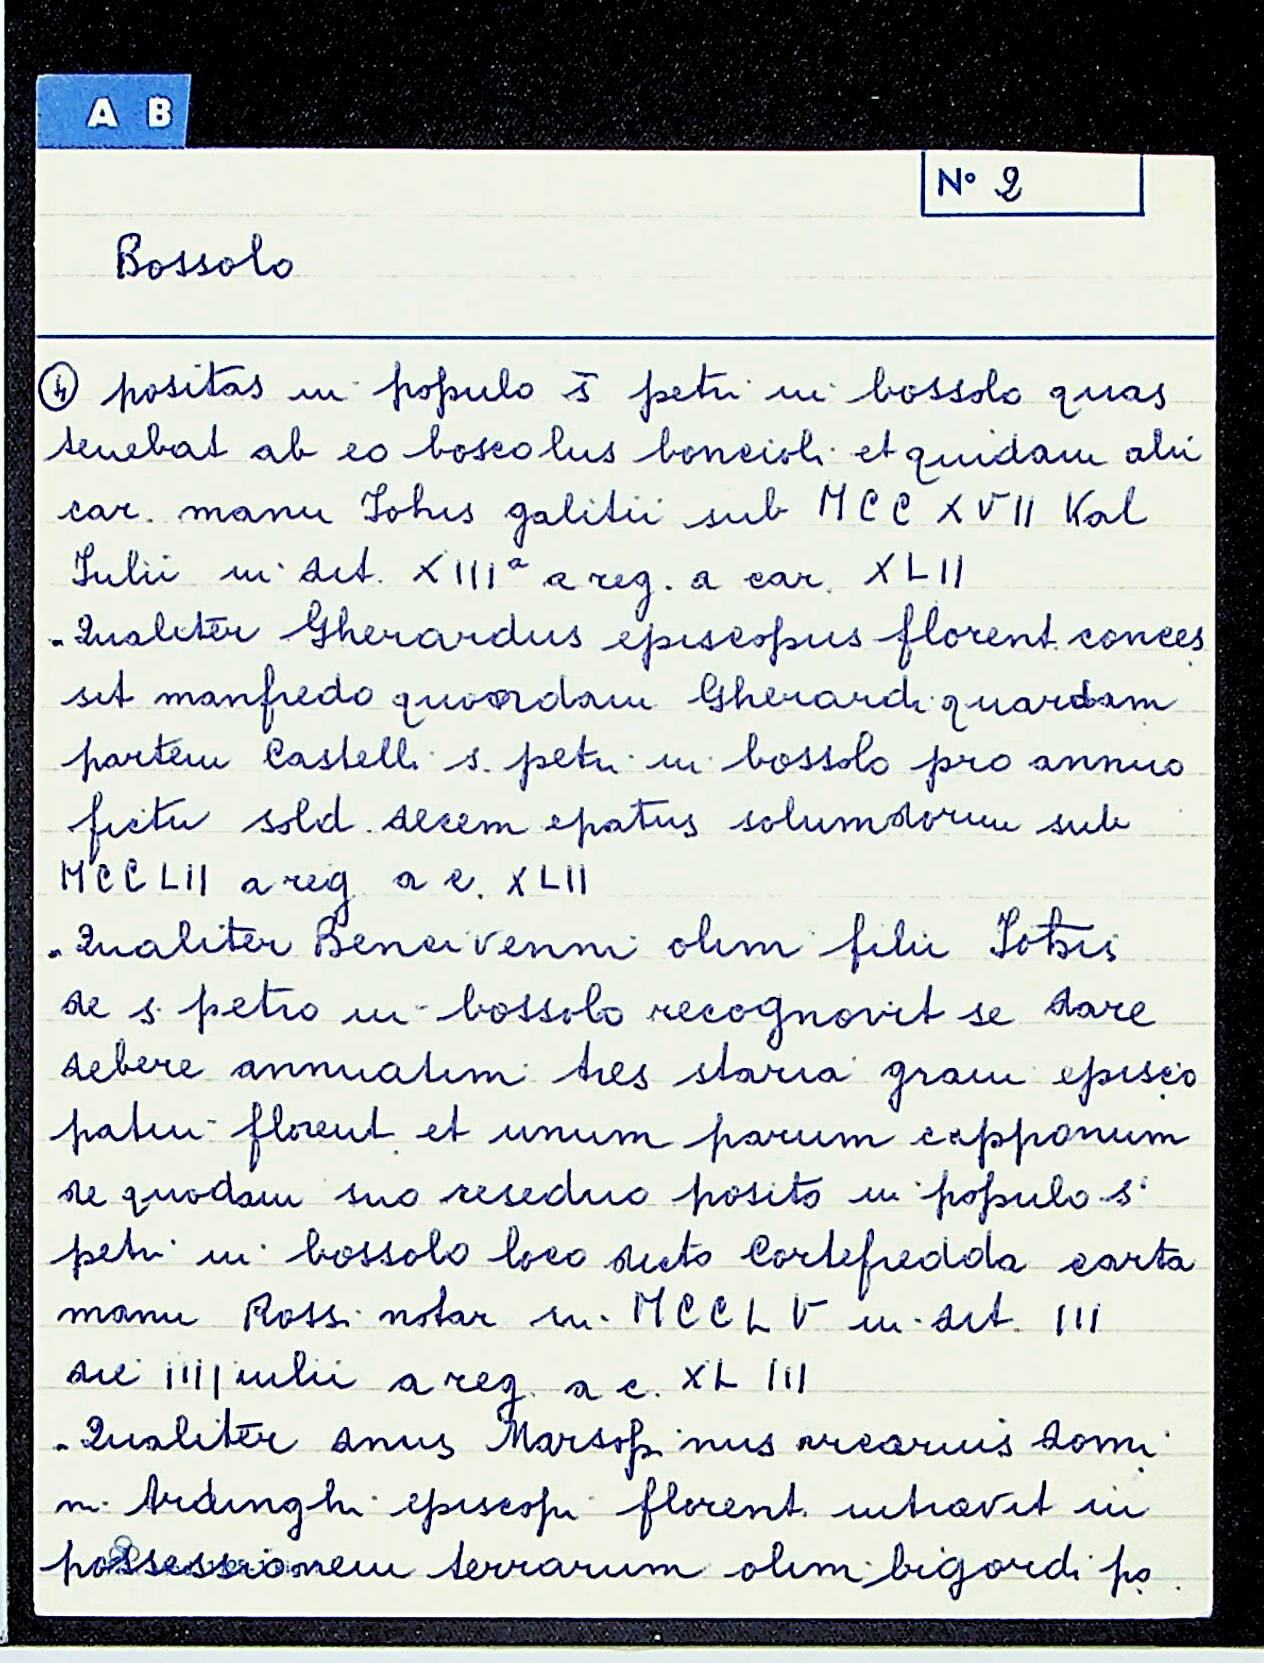 A B
N° 2
Bossolo
④ positas in populo s̄ petri in bossolo quas
tenebat ab eo boscolus boncioli et quidam alii
car. manu Johis galitii sub MCCXVII Kal
Iulii in dit. XIIIª a reg. a car. XLII
- Qualiter Gherardus episcopus florent. conces
sit manfredo quondam Gherardi quandam
partem Castelli s. petri in bossolo pro annuo
fictu sold. decem epatus solumdorum sub
MCCLII a reg. a c. XLII
- Qualiter Bencivenni olim filii Johis
de s. petro in bossolo recognovit se dare
debere annuatim tres staria grani episco
patui florent et unum parum capponum
de quodam suo reseduo posito in populo s.
petri in bossolo loco dicto Cortefredda carta
manu Rossi notar in MCCLV in dit. III
die IIII iulii a reg. a c. XLIII
- Qualiter dnus Marsopinus vicarius domi
ni Ardinghi episcopi florent. intravit in
possessionem terrarum olim bigordi po